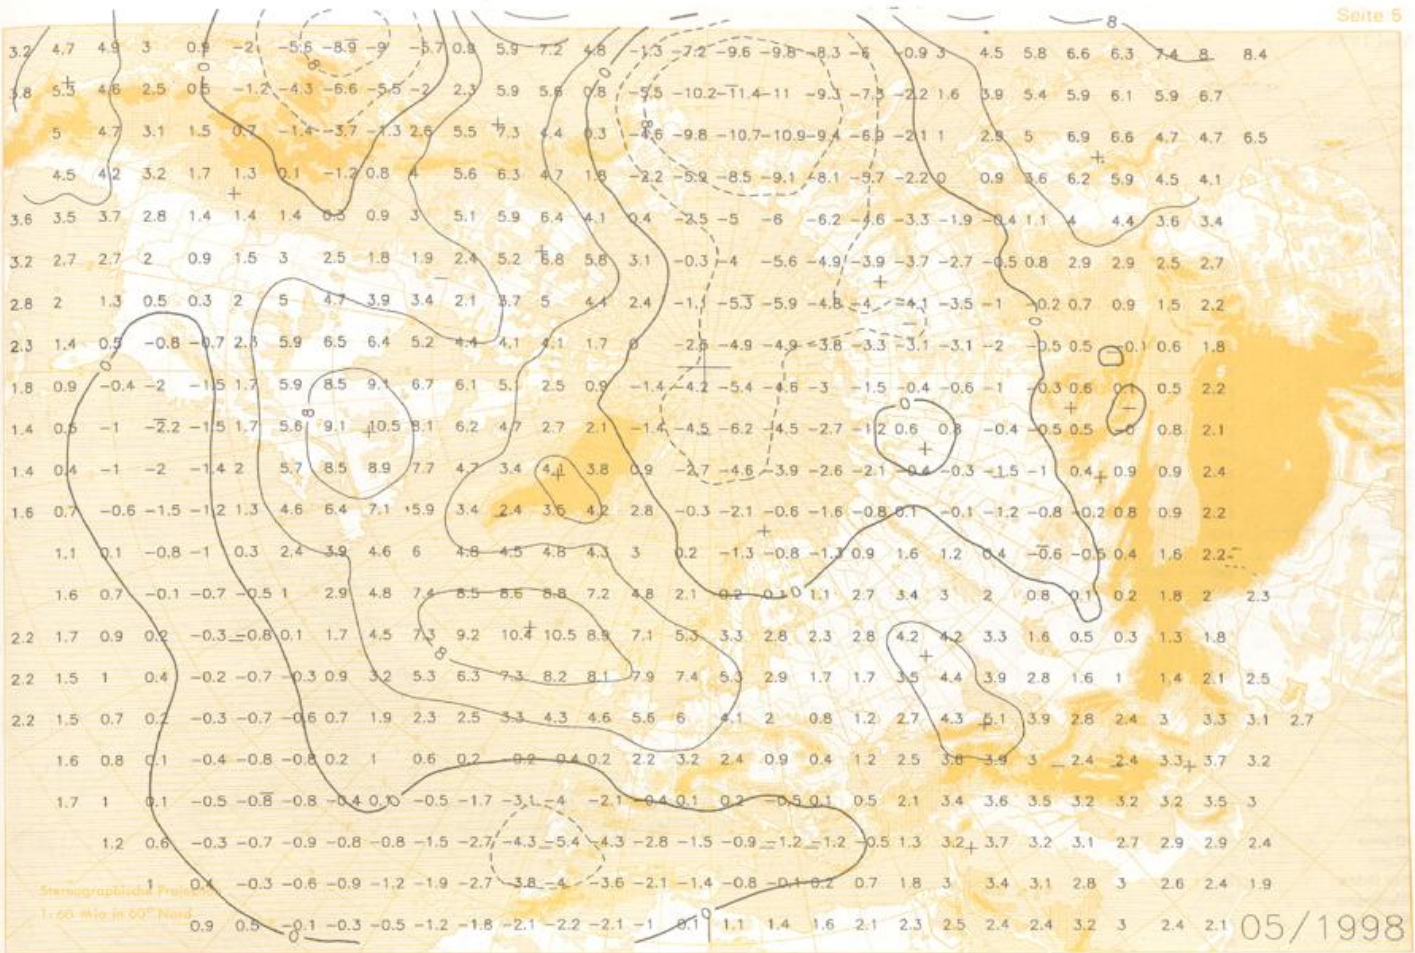 Seite 5
8
3.2 4.7 4.9 3 0.9 -2 -5.6 -8.9 -9 -5.7 0.9 5.9 7.2 4.8 -1.3 -7.2 -9.6 -9.8 -8.3 -6 -0.9 3 4.5 5.8 6.6 6.3 7.4 8 8.4
5.8 5.3 4.6 2.5 0.5 -1.2 -4.3 -6.6 -5.5 -2 2.3 5.9 5.6 0.8 -5.5 -10.2 -11.4 -11 -9.3 -7.3 -2.2 1.6 3.9 5.4 5.9 6.1 5.9 6.7
5 4.7 3.1 1.5 0.7 -1.4 -3.7 -1.3 2.6 5.5 7.3 4.4 0.3 -4.6 -9.8 -10.7 -10.9 -9.4 -6.9 -2.1 1 2.9 5 6.9 6.6 4.7 4.7 6.5
4.5 4.2 3.2 1.7 1.3 0.1 -1.2 0.8 4 5.6 6.3 4.7 1.8 -2.2 -5.9 -8.5 -9.1 -8.1 -5.7 -2.2 0 0.9 3.6 6.2 5.9 4.5 4.1
3.6 3.5 3.7 2.8 1.4 1.4 1.4 0.3 0.9 3 5.1 5.9 6.4 4.1 0.4 -2.5 -5 -6 -6.2 -4.6 -3.3 -1.9 -0.4 1.1 4 4.4 3.6 3.4
3.2 2.7 2.7 2 0.9 1.5 3 2.5 1.8 1.9 2.4 5.2 6.8 5.8 3.1 -0.3 -4 -5.6 -4.9 -3.9 -3.7 -2.7 -0.5 0.8 2.9 2.9 2.5 2.7
2.8 2 1.3 0.5 0.3 2 5 4.7 3.9 3.4 2.1 3.7 5 4.4 2.4 -1.1 -5.3 -5.9 -4.8 -4 -4.1 -3.5 -1 -0.2 0.7 0.9 1.5 2.2
2.3 1.4 0.5 -0.8 -0.7 2.3 5.9 6.5 6.4 5.2 4.4 4.1 4.1 1.7 0 -2.6 -4.9 -4.9 -3.8 -3.3 -3.1 -3.1 -2 -0.5 0.5 -0.1 0.6 1.8
1.8 0.9 -0.4 -2 -1.5 1.7 5.9 8.5 9.1 6.7 6.1 5.1 2.5 0.9 -1.4 -4.2 -5.4 -4.6 -3 -1.5 -0.4 -0.6 -1 -0.3 0.6 0.1 0.5 2.2
1.4 0.5 -1 -2.2 -1.5 1.7 5.6 9.1 10.5 8.1 6.2 4.7 2.7 2.1 -1.4 -4.5 -6.2 -4.5 -2.7 -1.2 0.6 0.8 -0.4 -0.5 0.5 -0 0.8 2.1
1.4 0.4 -1 -2 -1.4 2 5.7 8.5 8.9 7.7 4.7 3.4 4.1 3.8 0.9 -2.7 -4.6 -3.9 -2.6 -2.1 -0.4 -0.3 -1.5 -1 0.4 0.9 0.9 2.4
1.6 0.7 -0.6 -1.5 -1.2 1.3 4.6 6.4 7.1 5.9 3.4 2.4 3.5 4.2 2.8 -0.3 -2.1 -0.6 -1.6 -0.8 0.1 -0.1 -1.2 -0.8 -0.2 0.8 0.9 2.2
1.1 0.1 -0.8 -1 0.3 2.4 3.9 4.6 6 4.8 4.5 4.8 4.3 3 0.2 -1.3 -0.8 -1.3 0.9 1.6 1.2 0.4 -0.6 -0.5 0.4 1.6 2.2
1.6 0.7 -0.1 -0.7 -0.5 1 2.9 4.8 7.4 8.5 8.6 8.8 7.2 4.8 2.1 0.2 0.1 0 1.1 2.7 3.4 3 2 0.8 0.1 0.2 1.8 2 2.3
2.2 1.7 0.9 0.2 -0.3 -0.8 0.1 1.7 4.5 7.3 9.2 10.4 10.5 8.9 7.1 5.3 3.3 2.8 2.3 2.8 4.2 4.2 3.3 1.6 0.5 0.3 1.3 1.8
2.2 1.5 1 0.4 -0.2 -0.7 -0.3 0.9 3.2 5.3 6.3 7.3 8.2 8.1 7.9 7.4 5.3 2.9 1.7 1.7 3.5 4.4 3.9 2.8 1.6 1 1.4 2.1 2.5
2.2 1.5 0.7 0.2 -0.3 -0.7 -0.6 0.7 1.9 2.3 2.5 3.3 4.3 4.6 5.6 6 4.1 2 0.8 1.2 2.7 4.3 5.1 3.9 2.8 2.4 3 3.3 3.1 2.7
1.6 0.8 0.1 -0.4 -0.8 -0.8 0.2 1 0.6 0.2 -0.2 -0.4 0.2 2.2 3.2 2.4 0.9 0.4 1.2 2.5 3.6 3.9 3 2.4 2.4 3.3 3.7 3.2
1.7 1 0.1 -0.5 -0.8 -0.8 -0.4 0.1 0 -0.5 -1.7 -3.1 -4 -2.1 -0.4 0.1 0.2 -0.5 0.1 0.5 2.1 3.4 3.6 3.5 3.2 3.2 3.2 3.5 3
1.2 0.6 -0.3 -0.7 -0.9 -0.8 -0.8 -1.5 -2.7 -4.3 -5.4 -4.3 -2.8 -1.5 -0.9 -1.2 -1.2 -0.5 1.3 3.2 3.7 3.2 3.1 2.7 2.9 2.9 2.4
1 0.4 -0.3 -0.6 -0.9 -1.2 -1.9 -2.7 -3.8 -4 -3.6 -2.1 -1.4 -0.8 -0.1 0.2 0.7 1.8 3 3.4 3.1 2.8 3 2.6 2.4 1.9
0.9 0.5 -0.1 -0.3 -0.5 -1.2 -1.8 -2.1 -2.2 -2.1 -1 0.1 1.1 1.4 1.6 2.1 2.3 2.5 2.4 2.4 3.2 3 2.4 2.1
Stereographische
1:60 Mio in 60° Nord
05/1998